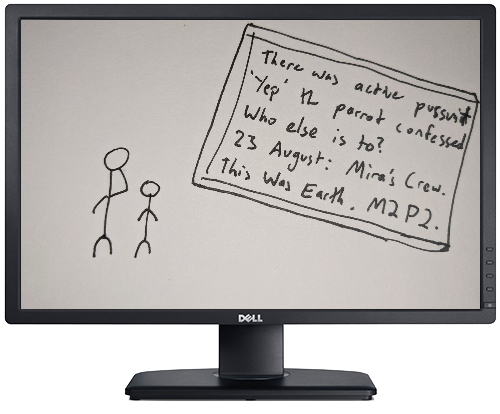 There was active pussuit
'Yep' th parrot confessed
Who else is to?
23 August: Mira's Crew.
This Was Earth. M2P2.
DELL